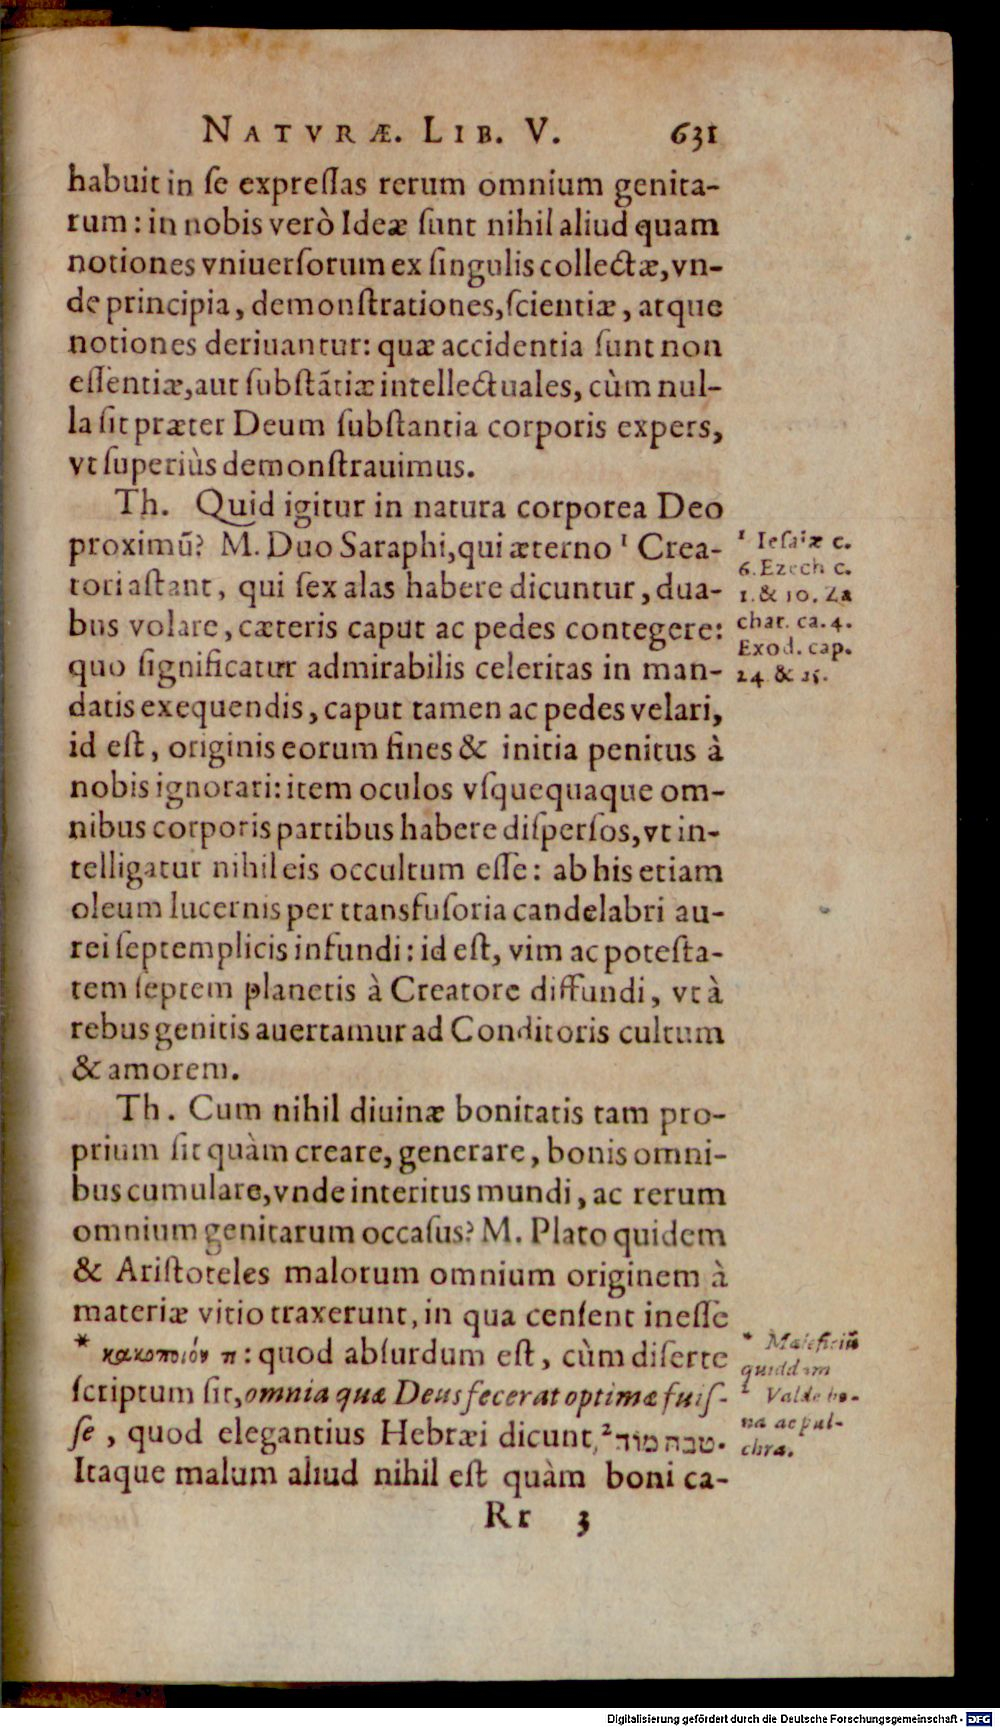 NATVRÆ. LIB. V. 631
habuit in ſe expreſſas rerum omnium genita-
rum: in nobis verò Ideæ ſunt nihil aliud quam
notiones vniuerſorum ex ſingulis collectæ, vn-
de principia, demonſtrationes, ſcientiæ, atque
notiones deriuantur: quæ accidentia ſunt non
eſſentiæ, aut ſubſtātiæ intellectuales, cùm nul-
la ſit præter Deum ſubſtantia corporis expers,
vt ſuperiùs demonſtrauimus.
Th. Quid igitur in natura corporea Deo
proximū? M. Duo Saraphi, qui æterno ¹ Crea-
tori aſtant, qui ſex alas habere dicuntur, dua-
bus volare, cæteris caput ac pedes contegere:
quo ſignificatur admirabilis celeritas in man-
datis exequendis, caput tamen ac pedes velari,
id eſt, originis eorum fines & initia penitus à
nobis ignorari: item oculos vſquequaque om-
nibus corporis partibus habere diſperſos, vt in-
telligatur nihil eis occultum eſſe: ab his etiam
oleum lucernis per transfuſoria candelabri au-
rei ſeptemplicis infundi: id eſt, vim ac poteſta-
tem ſeptem planetis à Creatore diffundi, vt à
rebus genitis auertamur ad Conditoris cultum
& amorem.
Th. Cum nihil diuinæ bonitatis tam pro-
prium ſit quàm creare, generare, bonis omni-
bus cumulare, vnde interitus mundi, ac rerum
omnium genitarum occaſus? M. Plato quidem
& Ariſtoteles malorum omnium originem à
materiæ vitio traxerunt, in qua cenſent ineſſe
* κακοποιόν π: quod abſurdum eſt, cùm diſerte
ſcriptum ſit, omnia quæ Deus fecerat optima fuiſ-
ſe, quod elegantius Hebræi dicunt, ² טבה מוד.
Itaque malum aliud nihil eſt quàm boni ca-
Rr 3
¹ Ieſaiæ c.
6. Ezech c.
1. & 10. Za
char. ca. 4.
Exod. cap.
24 & 25.
* Maleficiū
quiddam
² Valde bo-
na ac pul-
chra.
Digitalisierung gefördert durch die Deutsche Forschungsgemeinschaft - DFG